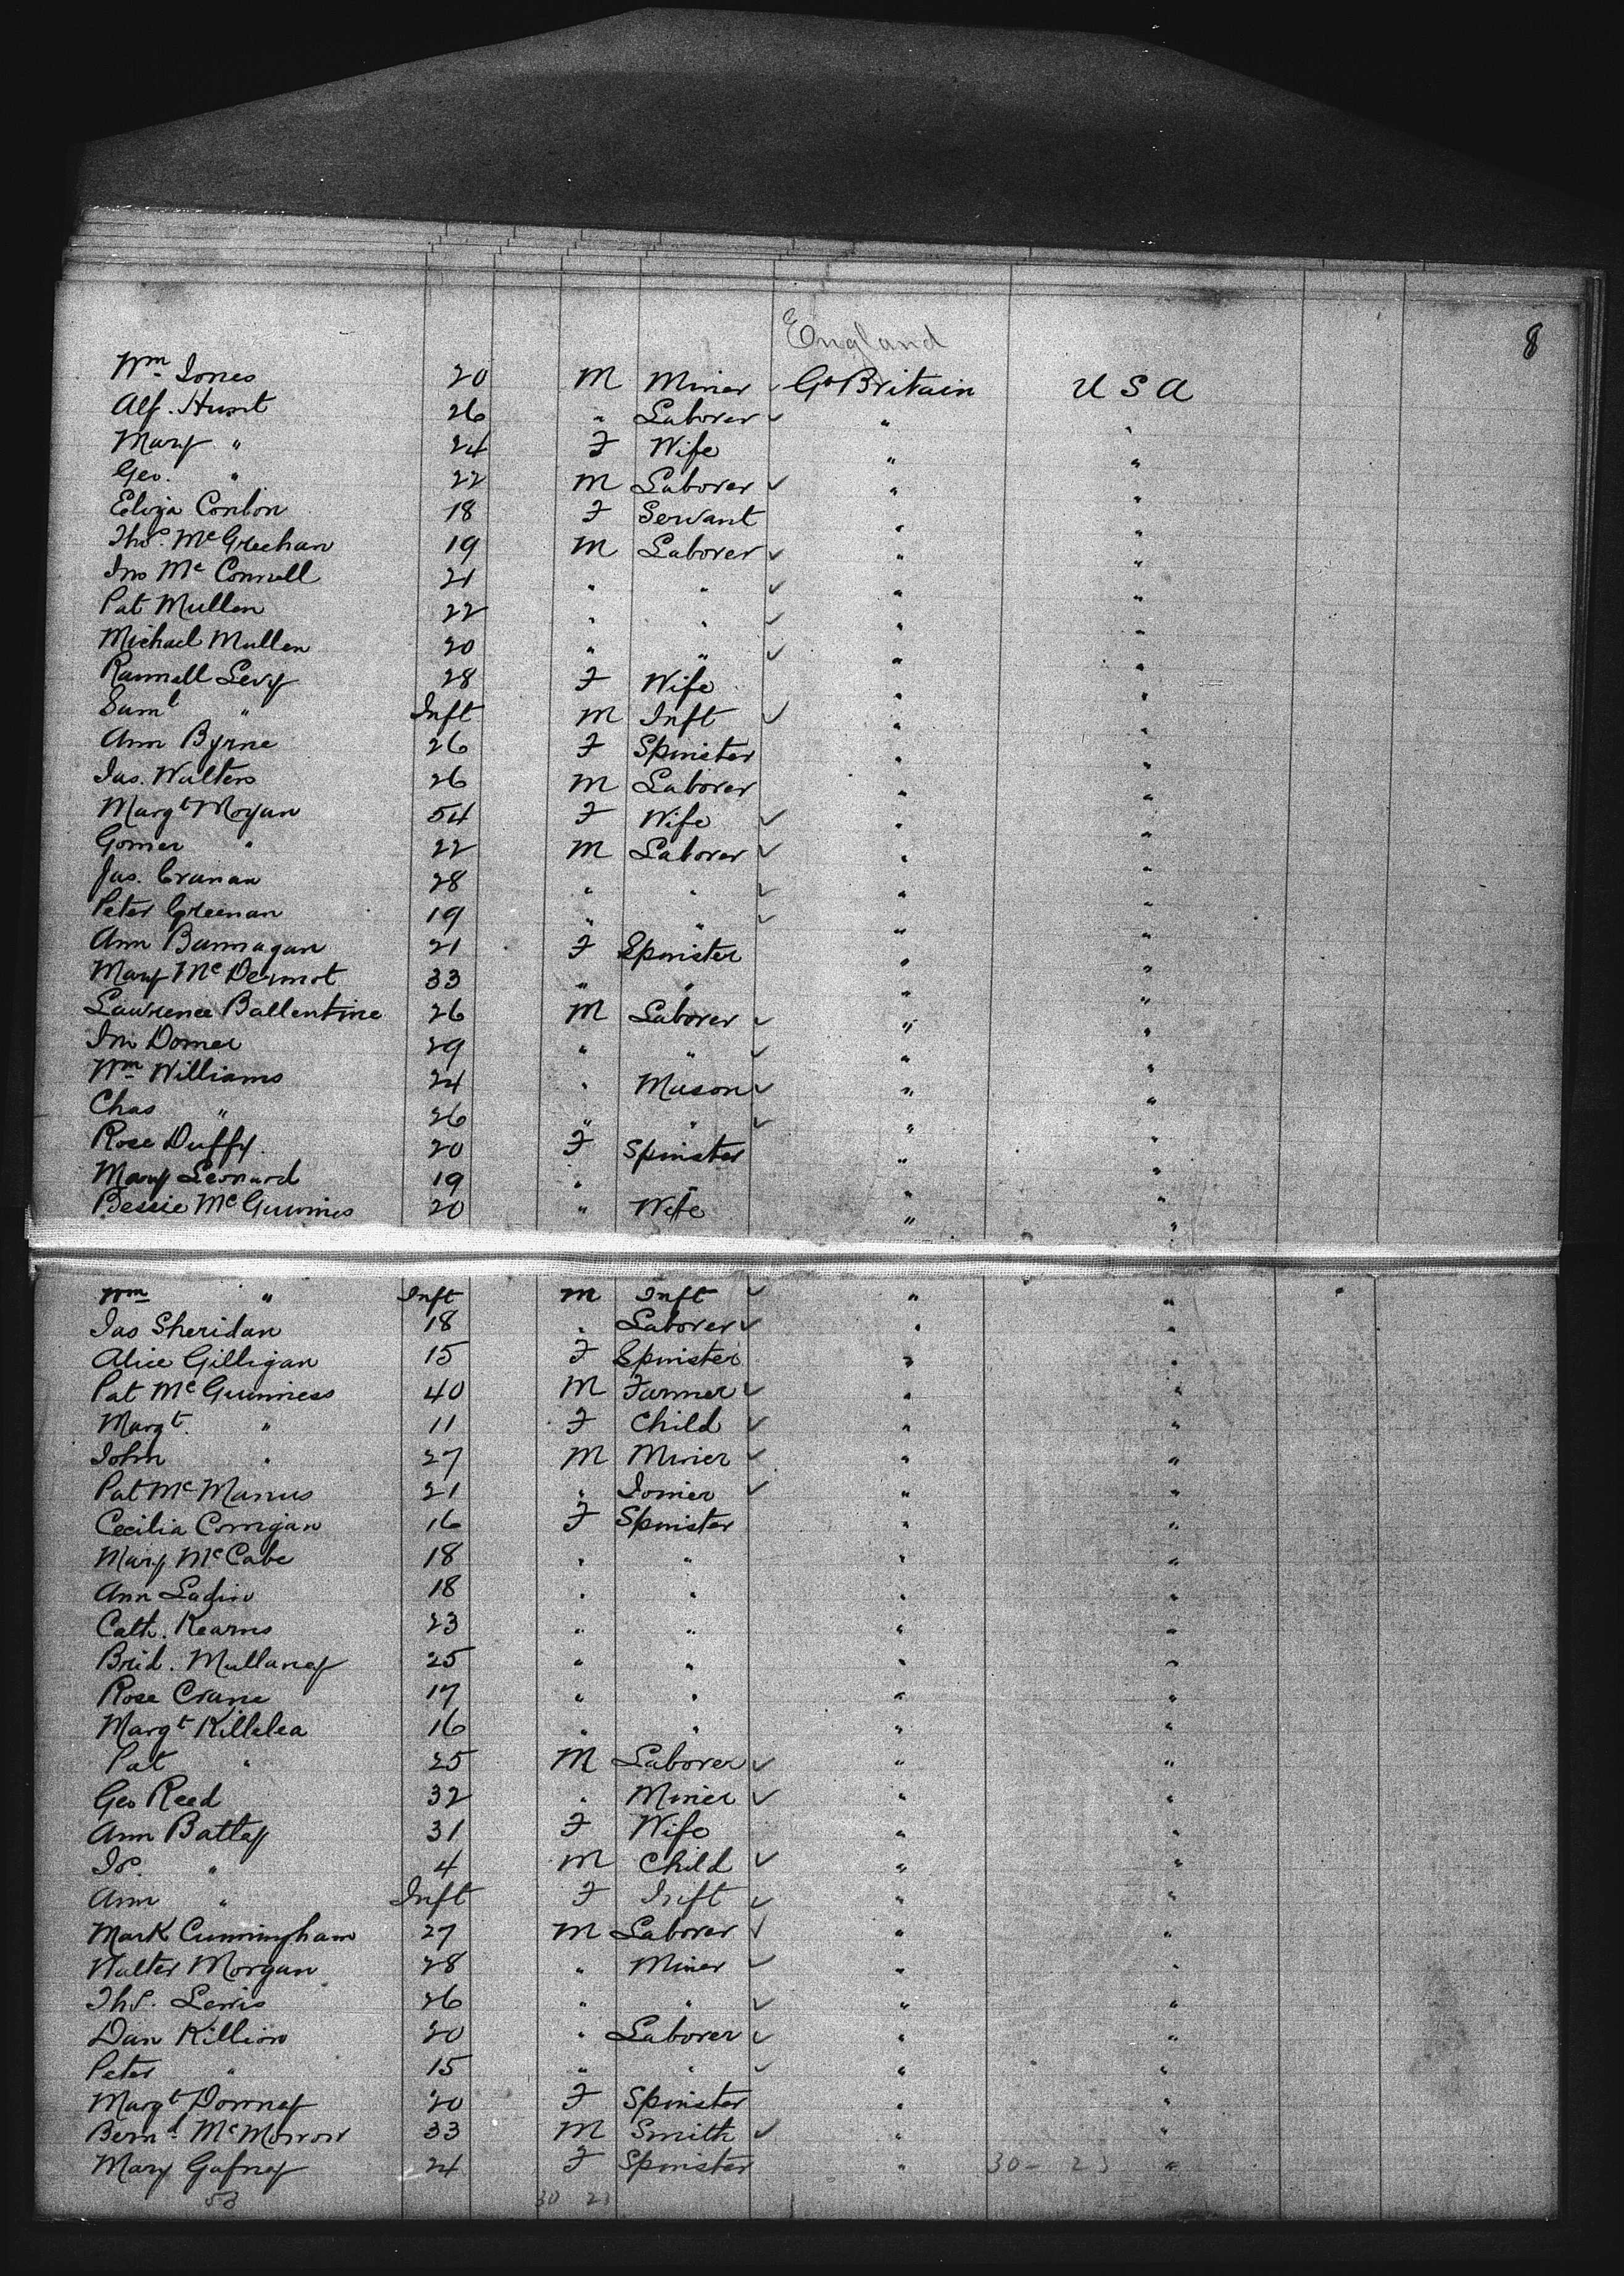 England
8
Wm Jones 20 M Miner Gt Britain U S A
Alf. Hunt 26 " Laborer " "
Mary " 24 F Wife " "
Geo. " 22 M Laborer " "
Eliza Conlon 18 F Servant " "
Thos. McGreehan 19 M Laborer " "
Jno McConnell 21 " " " "
Pat Mullen 22 " " " "
Michael Mullen 20 " " " "
Rannall Levy 28 F Wife " "
Saml " Inft M Inft " "
Ann Byrne 26 F Spinster " "
Jas. Walters 26 M Laborer " "
Margt Mogan 54 F Wife " "
Gomer " 22 M Laborer " "
Jas. Cranan 28 " " " "
Peter Greenan 19 " " " "
Ann Bannagan 21 F Spinster " "
Mary McDermot 33 " " " "
Lawrence Ballentine 26 M Laborer " "
Jno Domer 29 " " " "
Wm Williams 24 " Mason " "
Chas " 26 " " " "
Rose Duffy 20 F Spinster " "
Mary Leonard 19 " " " "
Bessie McGuinnis 20 " Wife " "
Wm " Inft M Inft " "
Jas Sheridan 18 " Laborer " "
Alice Gilligan 15 F Spinster " "
Pat McGuinness 40 M Farmer " "
Margt. " 11 F Child " "
John " 27 M Miner " "
Pat McManus 21 " Joiner " "
Cecilia Corrigan 16 F Spinster " "
Mary McCabe 18 " " " "
Ann 18 " " " "
Cath. Kearns 23 " " " "
Brid. Mullaney 25 " " " "
Rose Crane 17 " " " "
Margt Killelea 16 " " " "
Pat " 25 M Laborer " "
Geo Reed 32 " Miner " "
Ann Battey 31 F Wife " "
Js. " 4 M Child " "
Ann " Inft F Inft " "
Mark Cunningham 27 M Laborer " "
Walter Morgan 28 " Miner " "
Thos. Lewis 26 " " " "
Dan Killion 20 " Laborer " "
Peter " 15 " " " "
Margt Downey 20 F Spinster " "
Bernd McMorrow 33 M Smith " "
Mary Gafney 24 F Spinster " 30- 23 "
53 30 23